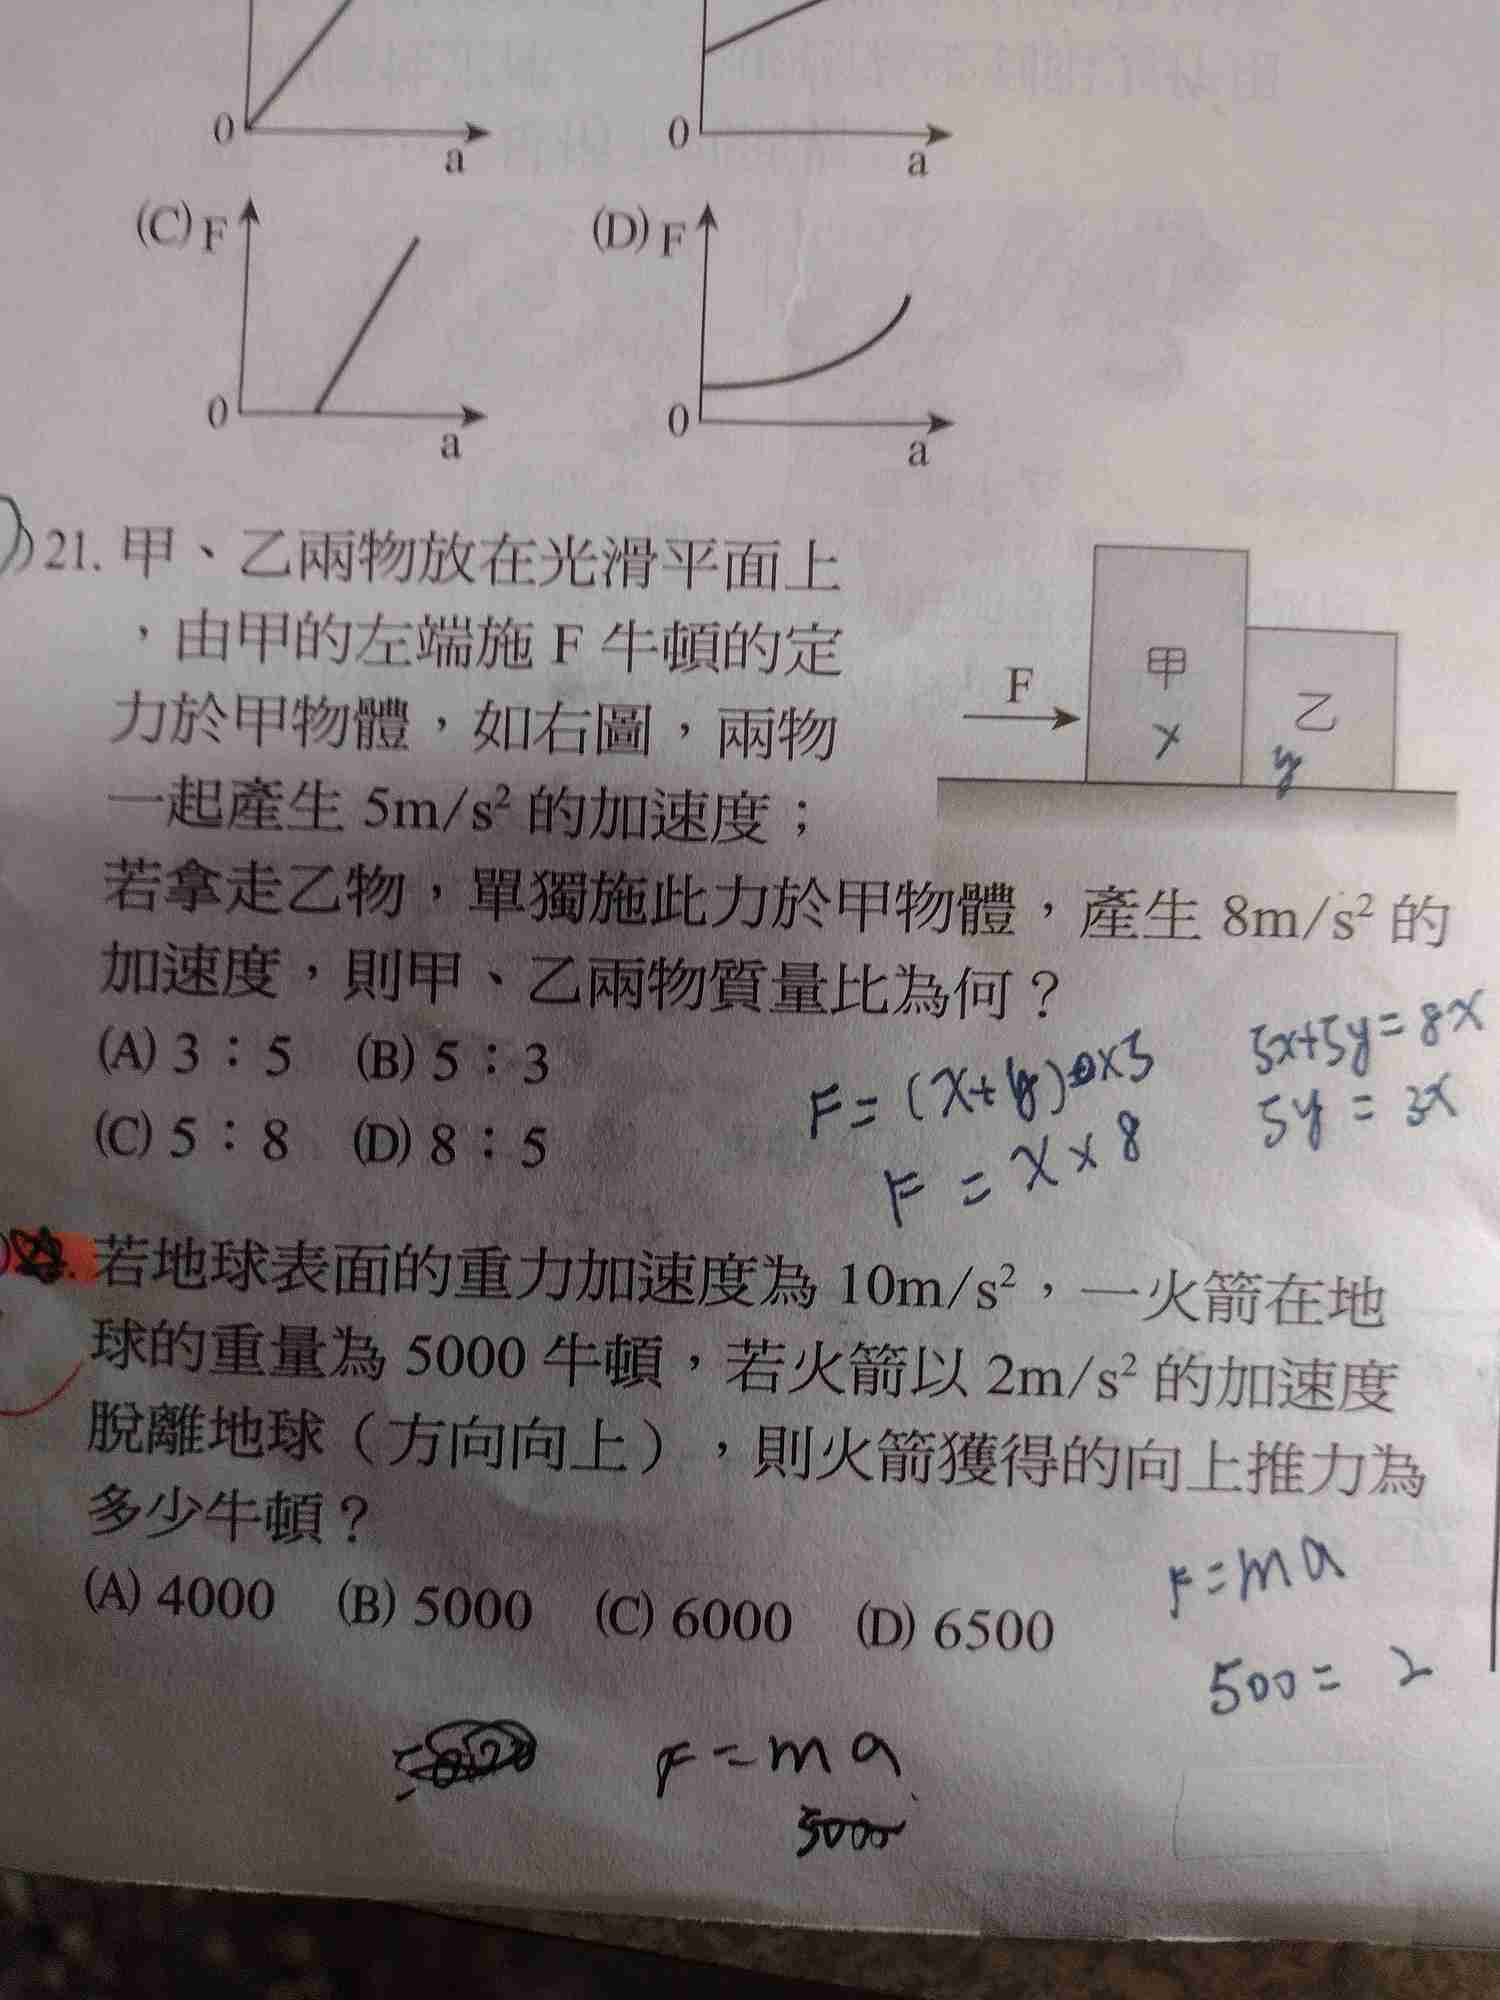 0
a
0
a
(C) F
0
a
(D) F
0
a
21. 甲、乙兩物放在光滑平面上
,由甲的左端施 F 牛頓的定
力於甲物體,如右圖,兩物
一起產生 5m/s² 的加速度;
若拿走乙物,單獨施此力於甲物體,產生 8m/s² 的
加速度,則甲、乙兩物質量比為何?
F
甲
x
乙
y
(A) 3:5 (B) 5:3
(C) 5:8 (D) 8:5
F = (x+y) ×5
F = x × 8
5x+5y = 8x
5y = 3x
若地球表面的重力加速度為 10m/s²,一火箭在地
球的重量為 5000 牛頓,若火箭以 2m/s² 的加速度
脫離地球(方向向上),則火箭獲得的向上推力為
多少牛頓?
(A) 4000 (B) 5000 (C) 6000 (D) 6500
F = ma
500 = 2
F = ma
5000